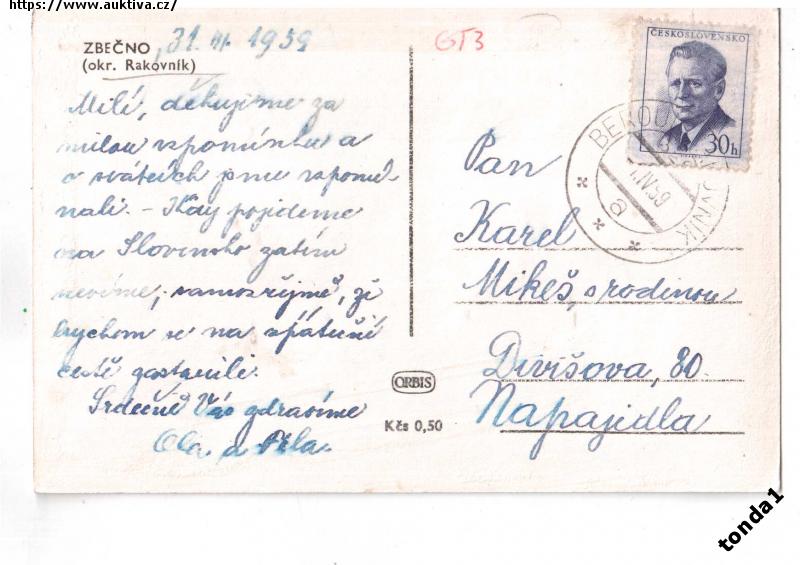 https://www.auktiva.cz/
ZBEČNO, 31. III. 1959
(okr. Rakovník)
Milí, děkujeme za
milou vzpomínku a
o svátcích jsme vzpomí-
nali. - Kdy pojedeme
na Slovinsko zatím
nevíme, samozřejmě, že
bychom se na zpáteční
cestě zastavili.
Srdečně Vás zdravíme
Ola a
GT3
ČESKOSLOVENSKO
30h
BEROUN RAKOVNÍK
IV.59
a
Pan
Karel
Mikeš, s rodinou
Divišova, 80.
Napajedla
ORBIS
Kčs 0,50
tonda1